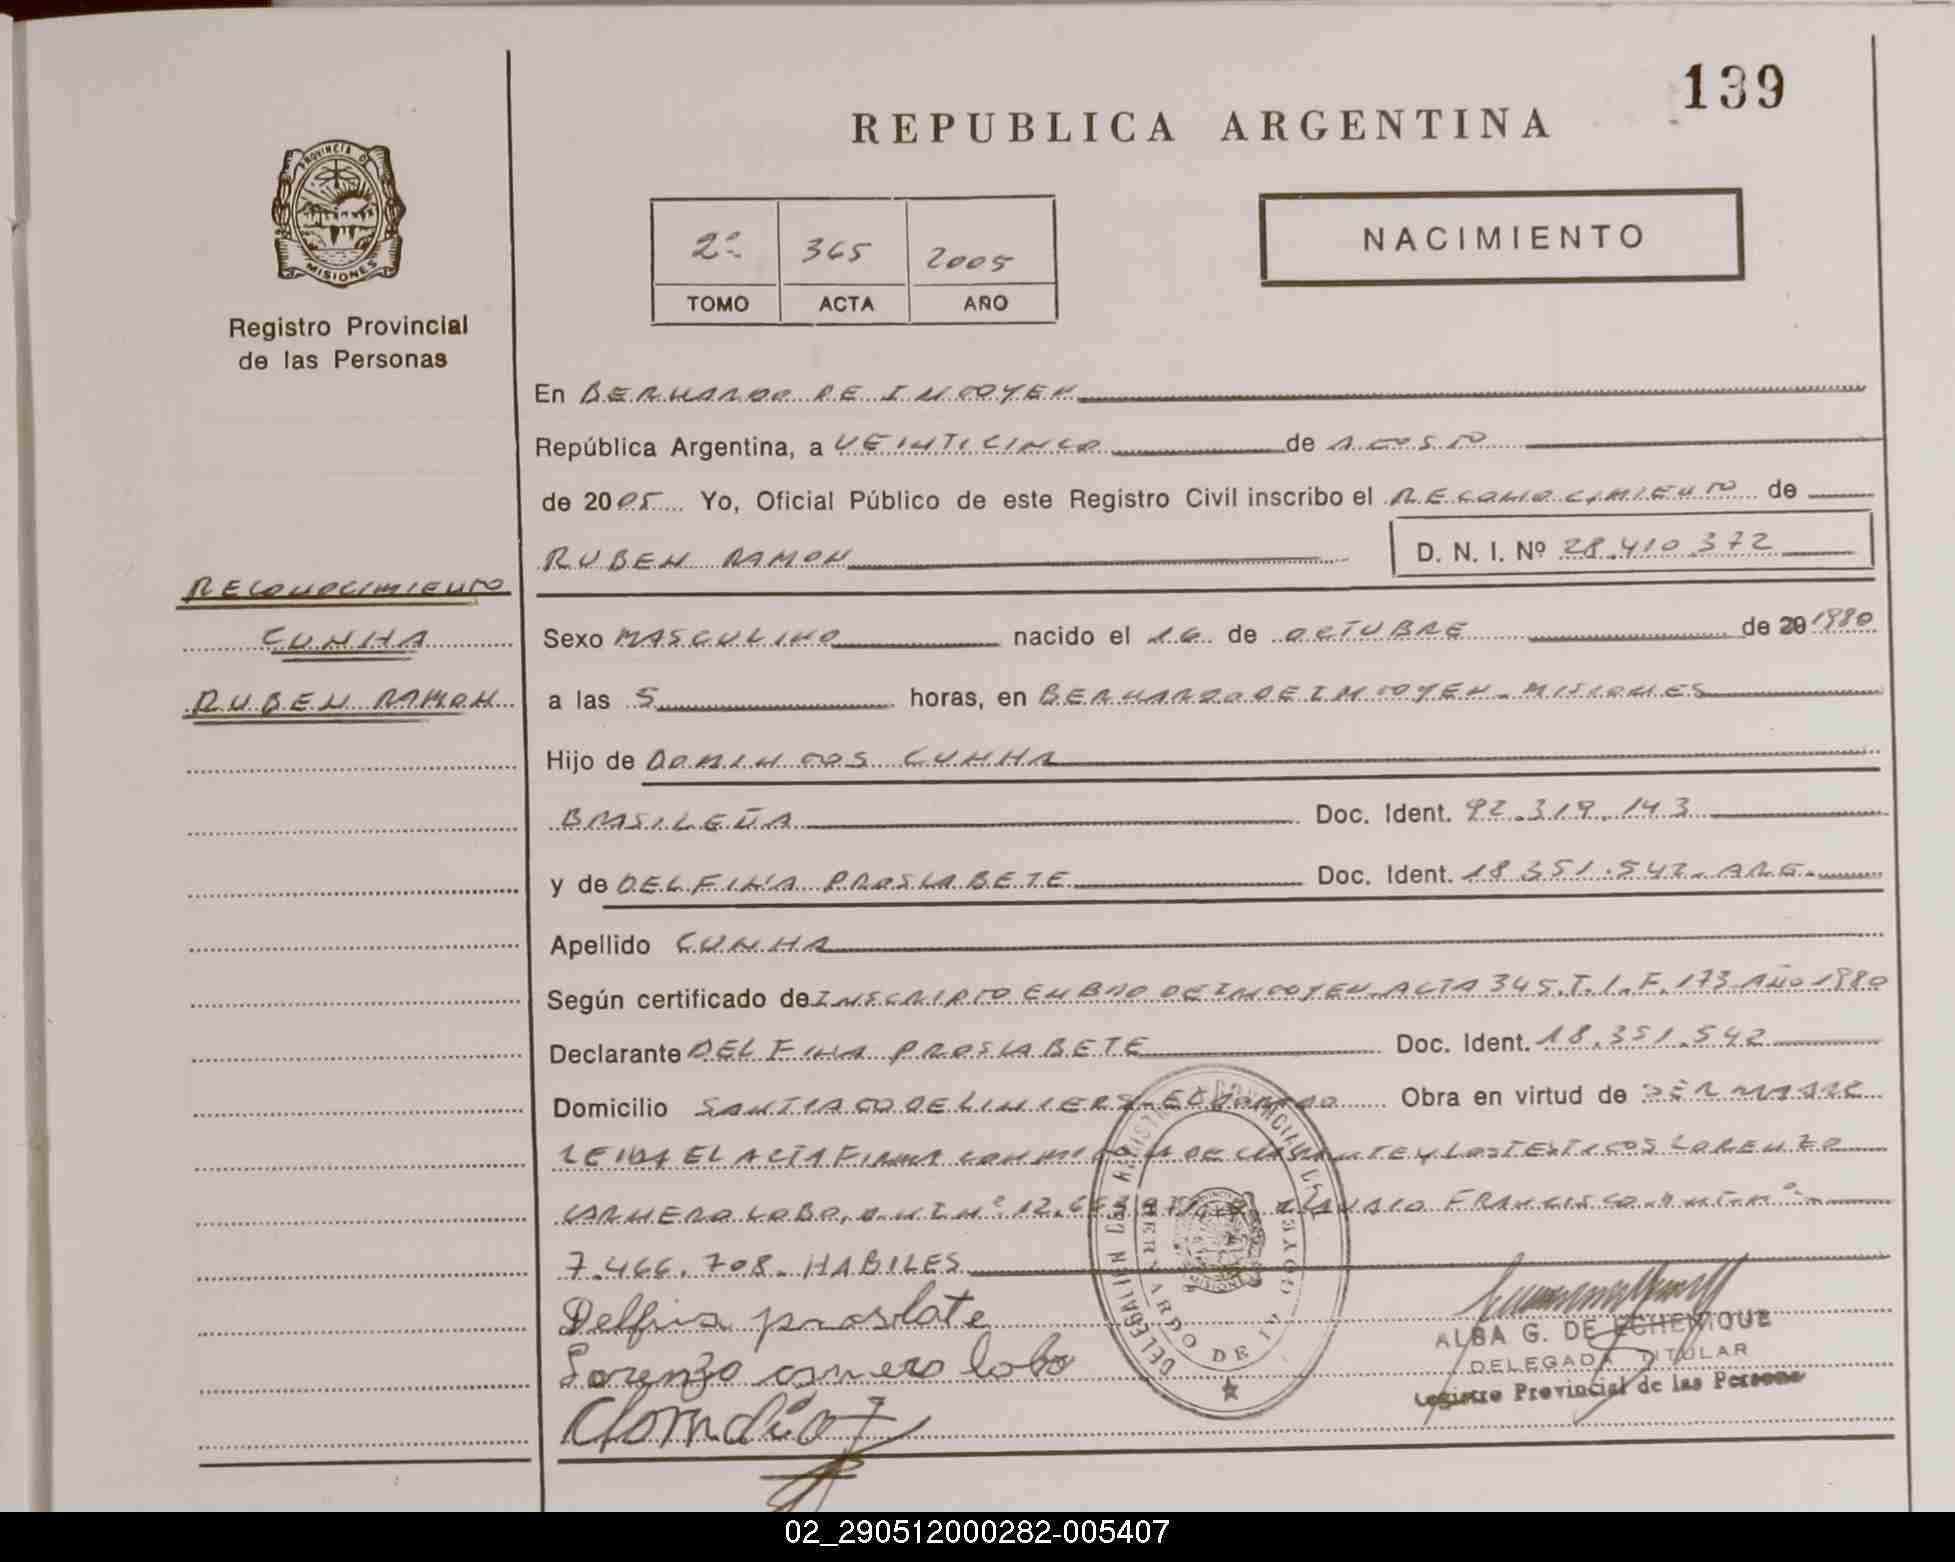 139
REPUBLICA ARGENTINA
PROVINCIA DE
MISIONES
Registro Provincial
de las Personas
2º 365 2005
TOMO ACTA AÑO
NACIMIENTO
En BERNARDO DE IRIGOYEN
República Argentina, a VEINTICINCO de AGOSTO
de 2005 Yo, Oficial Público de este Registro Civil inscribo el RECONOCIMIENTO de
RUBEN RAMON D. N. I. Nº 28.410.372
RECONOCIMIENTO
CUNHA
RUBEN RAMON
Sexo MASCULINO nacido el 16 de OCTUBRE de 20 1980
a las 5 horas, en BERNARDO DE IRIGOYEN - MISIONES
Hijo de DOMINGOS CUNHA
BRASILEÑA Doc. Ident. 92.319.143
y de DELFINA PROSLABETE Doc. Ident. 18.351.542 - ARG.
Apellido CUNHA
Según certificado de INSCRIPTO EN BDO DE IRIGOYEN - ACTA 345. T. 1. F. 173 AÑO 1980
Declarante DELFINA PROSLABETE Doc. Ident. 18.351.542
Domicilio SANTIAGO DE LINIERS - ELDORADO Obra en virtud de SER MADRE
LEIDA EL ACTA FIRMA CONMIGO LA DECLARANTE Y LOS TESTIGOS LORENZO
CARNERO LOBO, D.N.I Nº 12.663 CLAUDIO FRANCISCO D.N.I. Nº
7.466.708 - HABILES
Delfina proslate
Lorenzo carnero lobo
DELEGACIÓN DEL REGISTRO PROVINCIAL DE
BERNARDO DE IRIGOYEN
ALBA G. DE ECHENIQUE
DELEGADA TITULAR
Registro Provincial de las Personas
02_290512000282-005407